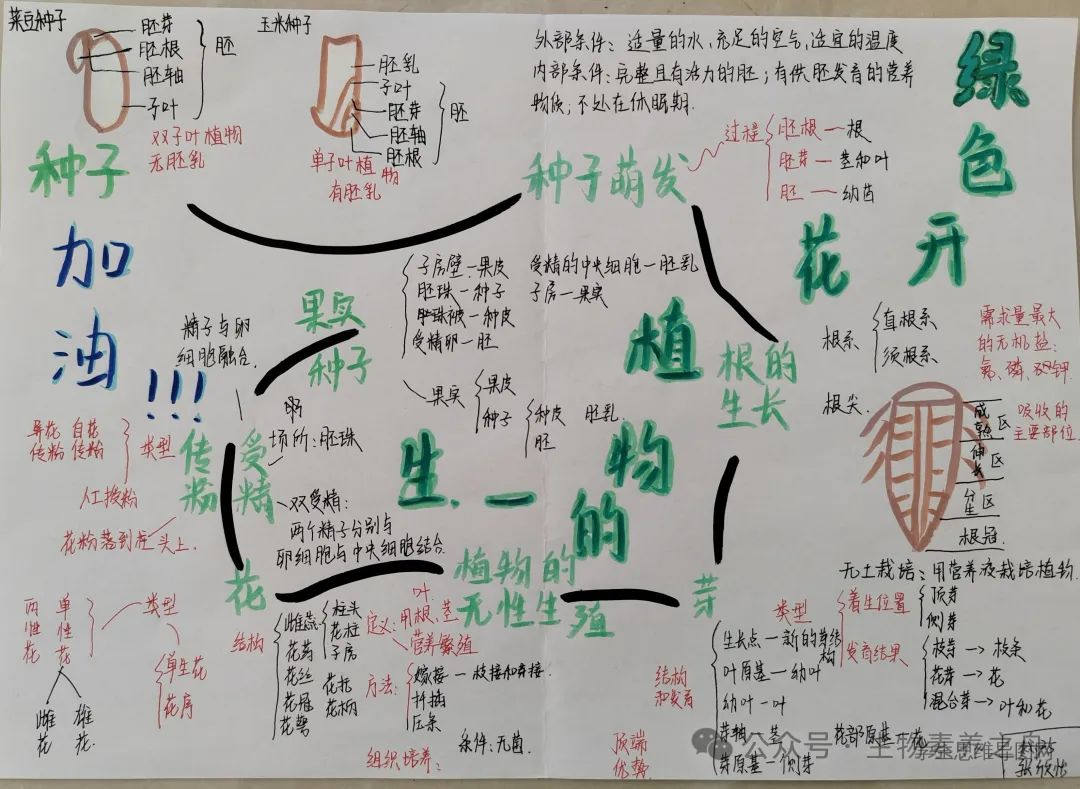 菜豆种子
胚芽
胚根
胚轴
子叶
胚
双子叶植物
无胚乳
玉米种子
胚乳
子叶
胚芽
胚轴
胚根
胚
单子叶植物
有胚乳
种子
外部条件：适量的水，充足的空气，适宜的温度
内部条件：完整且有活力的胚；有供胚发育的营养
物质；不处在休眠期.
种子萌发
过程
胚根—根
胚芽—茎和叶
胚—幼苗
绿色
花开
加油!!!
植物的一生
果实
种子
子房壁—果皮
胚珠—种子
珠被—种皮
受精卵—胚
受精的中央细胞—胚乳
子房—果实
果实
果皮
种子
种皮 胚乳
胚
根的
生长
根系
直根系
须根系
需求量最大
的无机盐：
氮、磷、钾
根尖
成熟区
伸长区
分生区
根冠
吸收的
主要部位
无土栽培：用营养液栽培植物
精子与卵
细胞融合.
场所：胚珠
传粉
受精
异花传粉
自花传粉
类型
人工授粉
花粉落到柱头上.
双受精：
两个精子分别与
卵细胞与中央细胞结合.
花
类型
两性花
单性花
雌花
雄花
单生花
花序
结构
雌蕊
柱头
花柱
子房
花药
花丝
花萼
花瓣
花托
花柄
植物的
无性生殖
定义：用根、茎、叶
营养繁殖
方法：
嫁接—枝接和芽接.
扦插
压条
组织培养：
条件：无菌.
芽
类型
着生位置
顶芽
侧芽
发育结果
枝芽→枝条
花芽→花
混合芽→叶和花
结构
和发育
生长点—新的芽结构
叶原基—幼叶
幼叶—叶
芽轴—茎
芽原基—侧芽
花部原基—花
顶端
优势
公众号·生物素养之舟
学生思维导图网